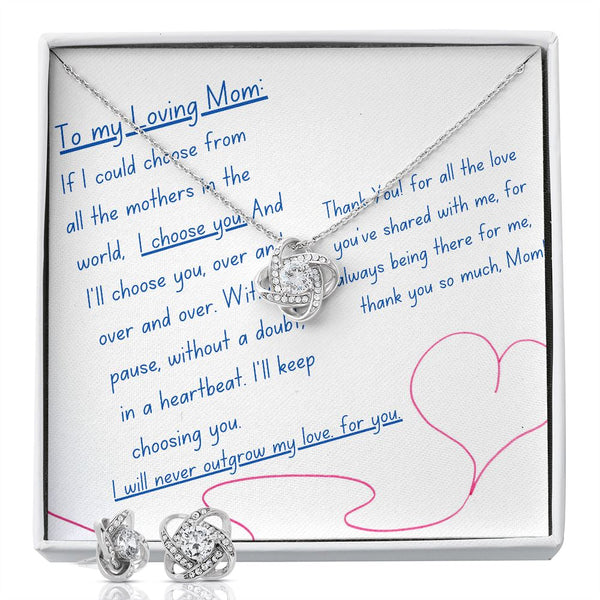 To my Loving Mom:
If I could choose from
all the mothers in the
world, I choose you. And
I'll choose you, over and
over and over. Wit
pause, without a doubt,
in a heartbeat. I'll keep
choosing you.
I will never outgrow my love. for you.
Thank You! for all the love
you've shared with me, for
always being there for me,
thank you so much, Mom!